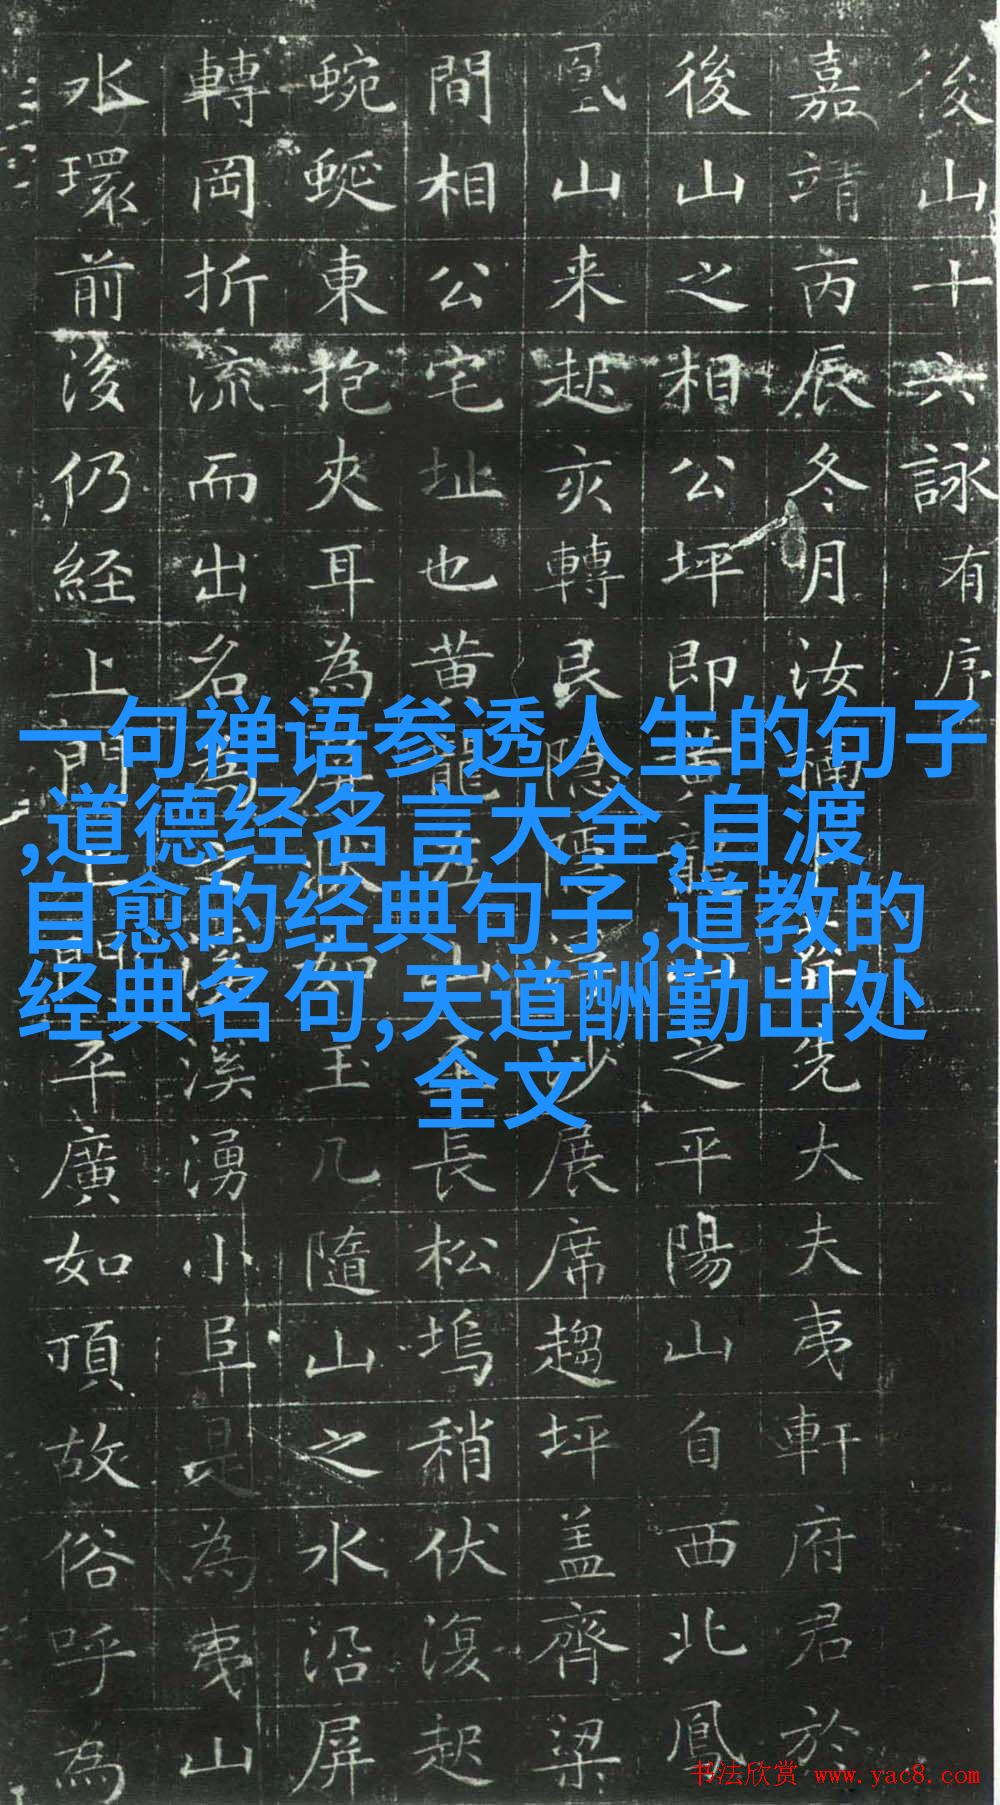 後山十六詠有序
嘉靖丙辰冬月汝楠先大夫夷軒府君於
後山之相公坪即黄龍山之平陽山自西北鳳
凰山来起亥轉艮隐隱沙展席趨坪盖齊梁
間相公宅址也黄龍五山至長松塢稍伏復起
蜿蜒東抱夾耳為屏如玉几隨山之水沿屏
轉岡折流而出名為溪湧小阜是為夷山
水環前後仍經上門上平廣如頂故俗呼為
一句禅语参透人生的句子
,道德经名言大全,自渡
自愈的经典句子,道教的
经典名句,天道酬勤出处
全文
书法欣赏 www.yac8.com